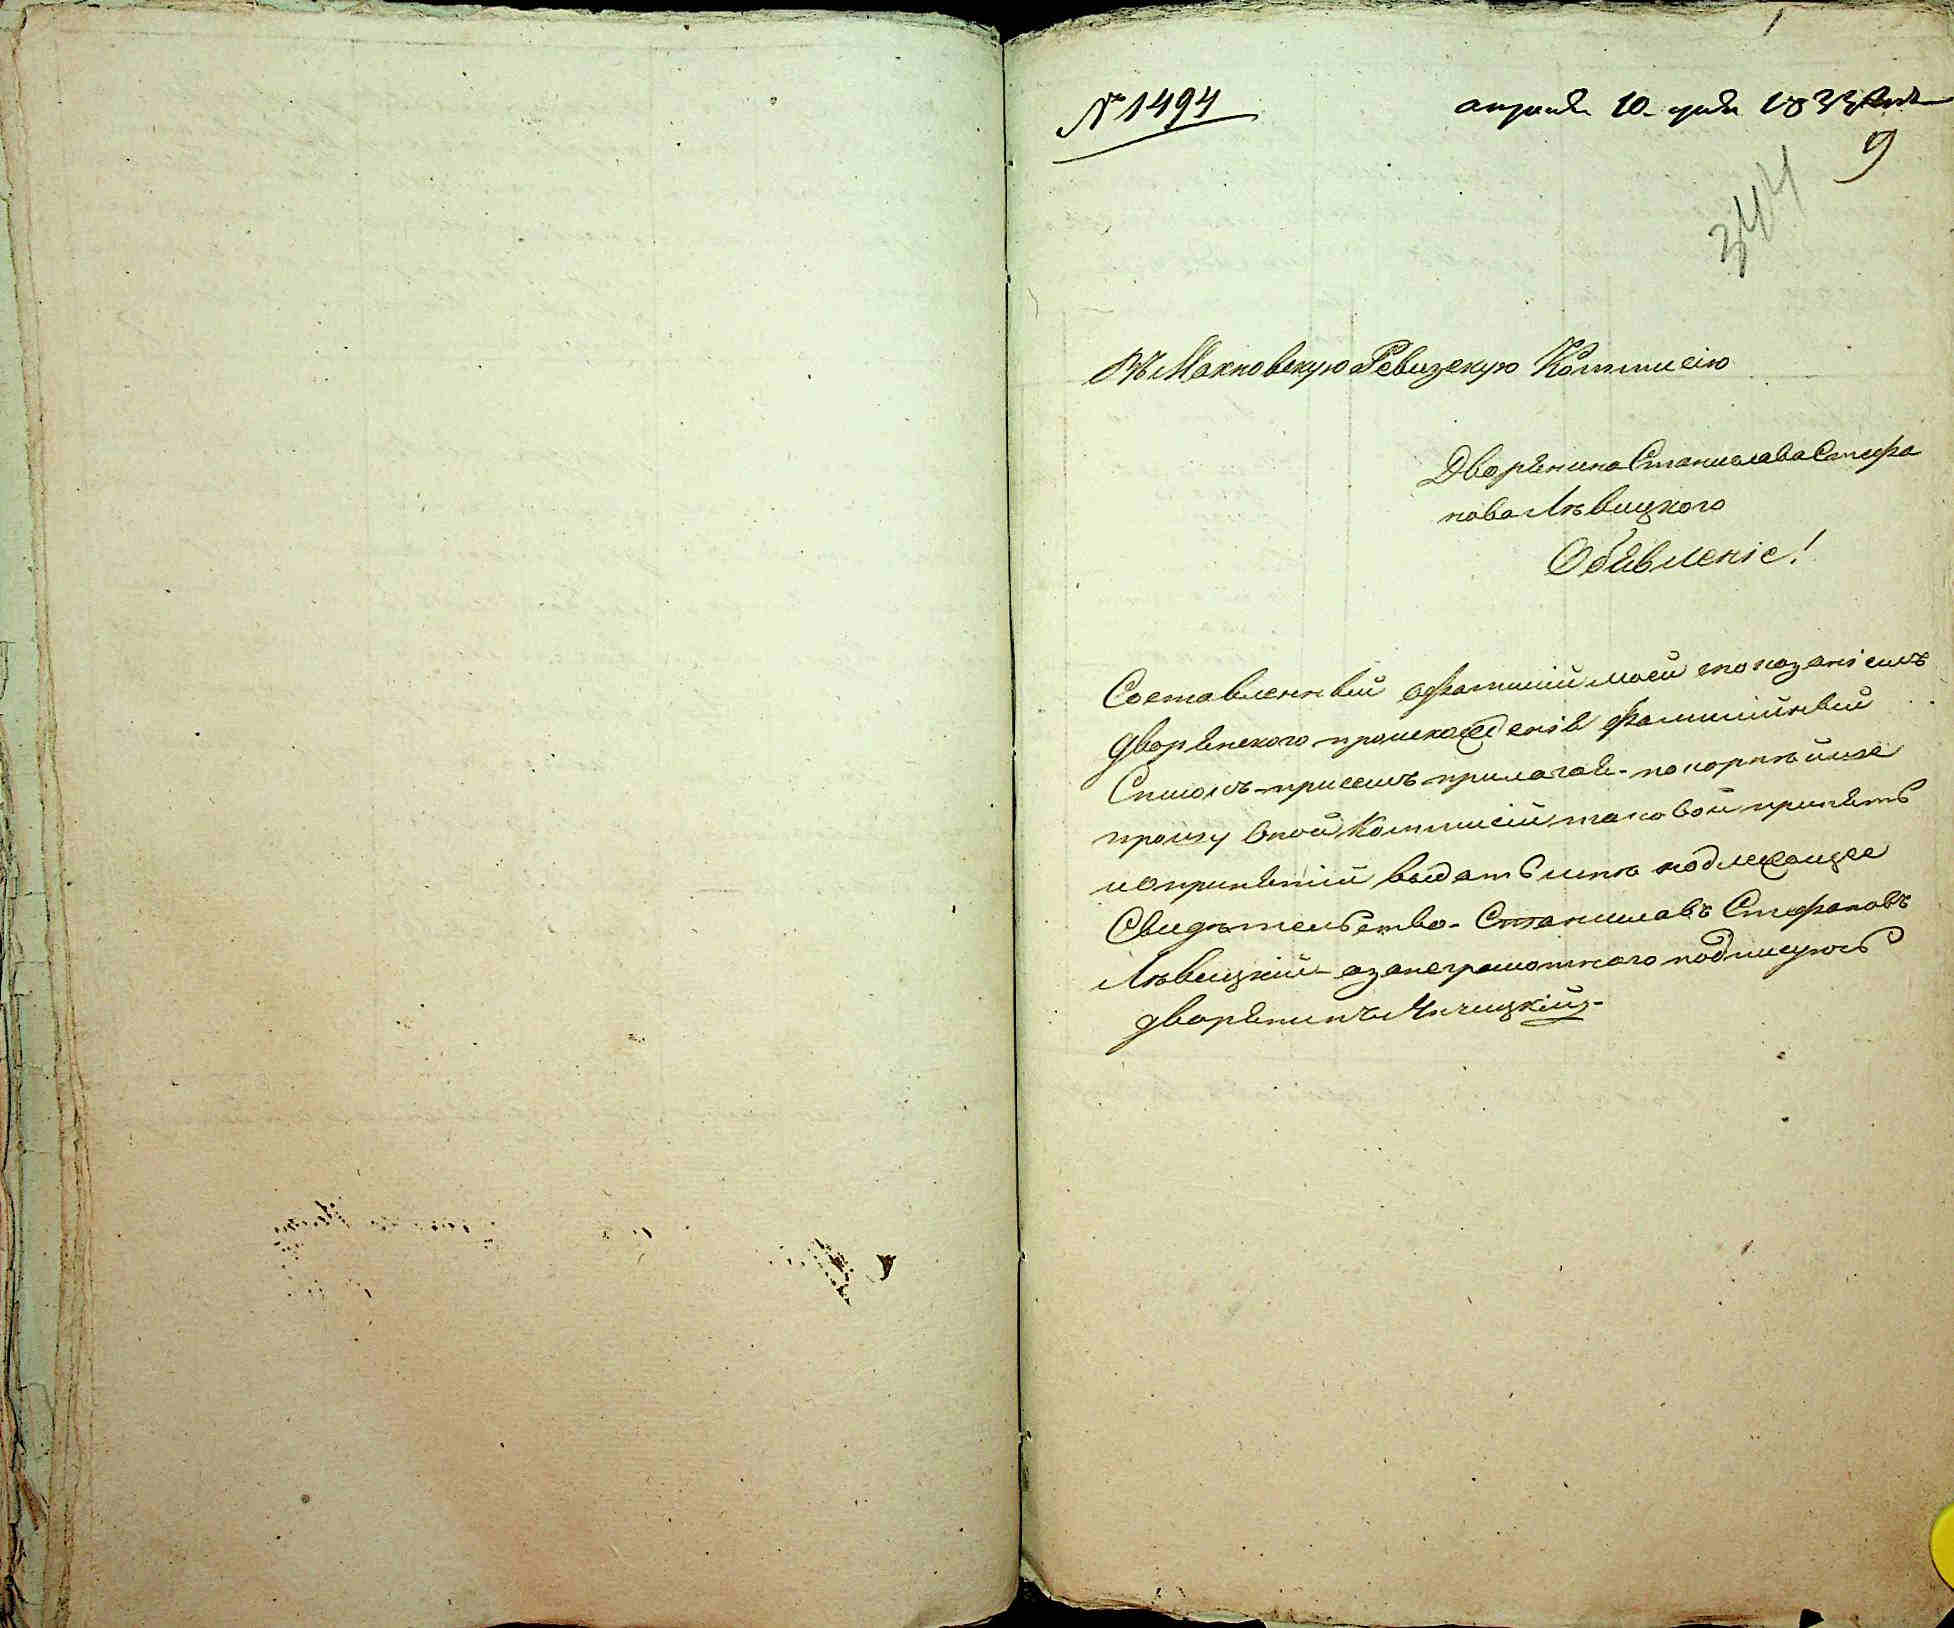 1
№ 1494
апреля 10 дня 1833 года
9
344
Въ Махновскую Ревизскую Коммисію
Дворянина Станислава Стефа
нова Лѣвицкого
Обявленіе!
Составленный офамиліи моей споказаніемъ
дворянского происхожденія фамилійный
Списокъ присемъ прилагая покорнѣйше
прошу оной Коммисіи таковой принять
и опринятіи выдать мнѣ надлежащее
Свидѣтельство. Станиславъ Стефановъ
Лѣвицкій а занеграмотного подписуюсь
дворянинъ